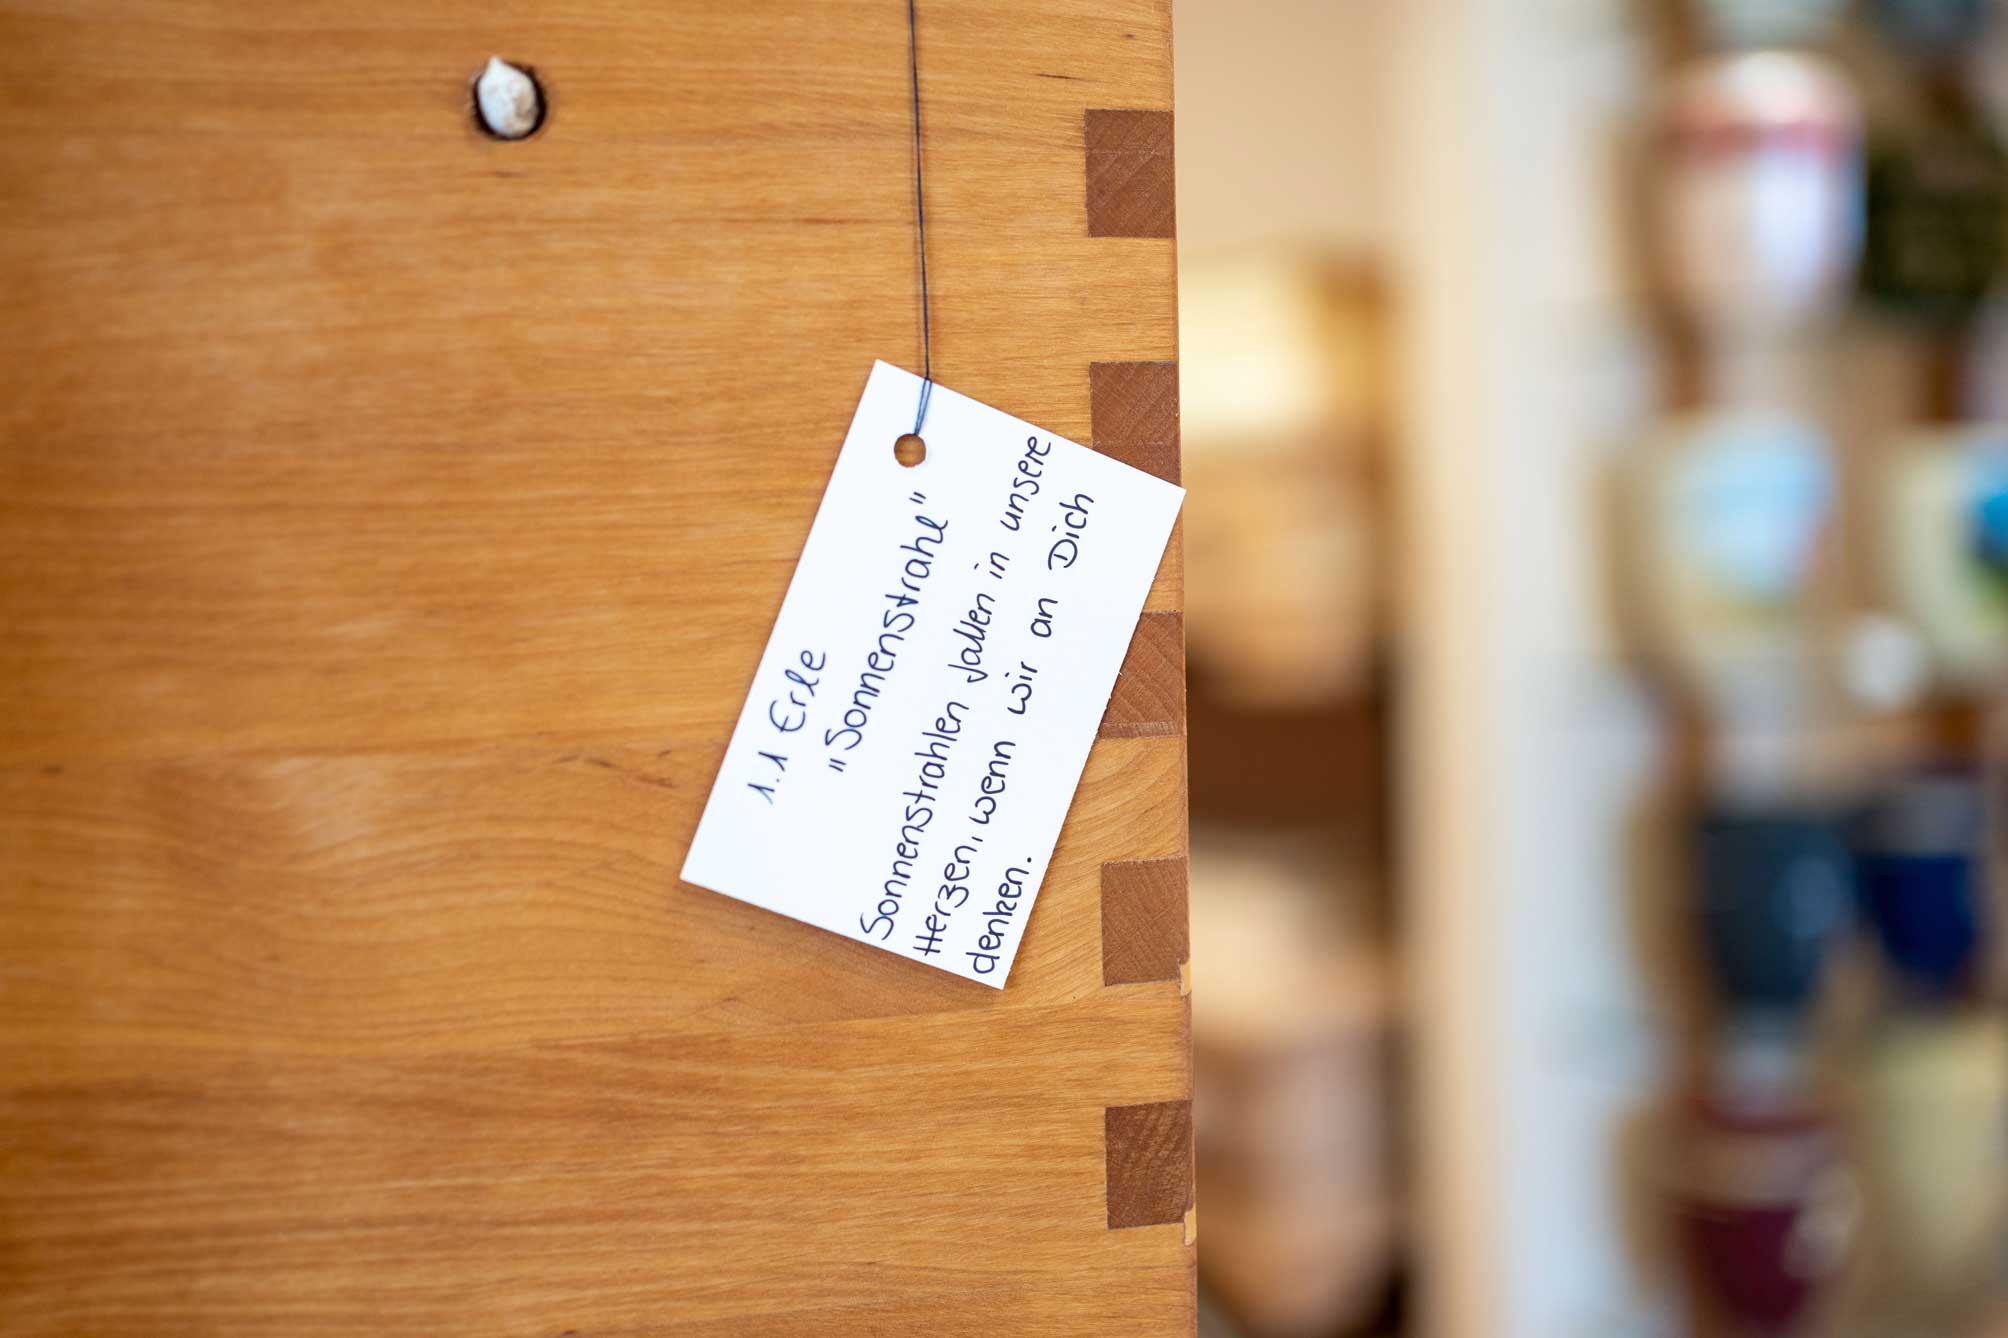 1.1 Erle
„Sonnenstrahl"
Sonnenstrahlen fallen in unsere
Herzen, wenn wir an Dich
denken.